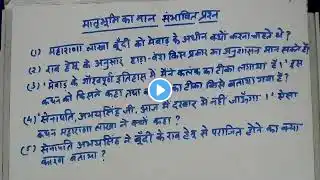 मातृभूमि का मान संभावित प्रश्न
(1) महाराणा लाखा बूँदी को मेवाड़ के अधीन क्यों करना चाहते थे?
(2) राव हेमू के अनुसार हाड़ा-वंश किस प्रकार का अनुशासन मान सकते हैं?
(3) 'मेवाड़ के गौरवपूर्ण इतिहास में मैंने कलंक का टीका लगाया है।' इस
कथन को किसने कहा तथा का टीका किसे बताया गया है?
(4) 'सेनापति, अभयसिंह जी, आज मैं दरबार में नहीं जाऊँगा।' ऐसा
कथन महाराणा लाखा ने क्यों कहा?
(5) सेनापति अभयसिंह ने बूँदी के राव हेमू से पराजित होने का क्या
कारण बताया?